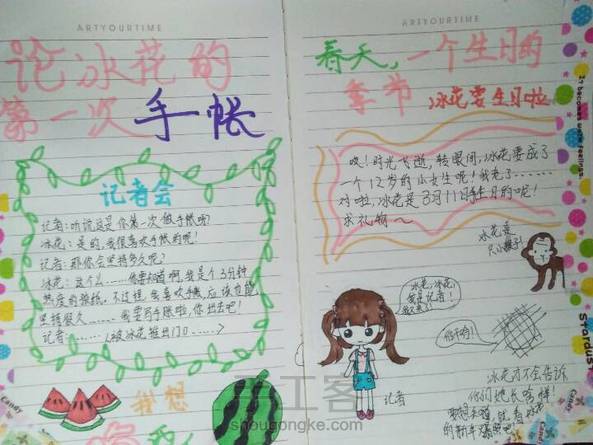 ARTYOURTIME
论冰花的
第一次手帐
记者会
记者:听说这是你第一次做手帐哦!
冰花:是的,我很喜欢手帐的呢!
记者:那你会坚持多久呢?
冰花:这个么……你要知道啊,我是个3分钟
热度的操操。不过柜,我喜欢手帐,应该也能
坚持很久……我要写手帐啦,你出去吧!
记者:……(被冰花推出门口……)
我想
ARTYOURTIME
春天,一个生日的
季节 冰花要生日啦
哎!时光飞逝,转眼间,冰花要成了
一个12岁的小女生呢!我老了……
对啦,冰花是3月11日生日的呢!
求礼物~
冰花是
只小猴子!
冰花,冰花,
我是记者!
你干嘛!
记者
冰花才不会告诉
你们她长啥样!
手工客
shougongke.com
Stardust
Candy